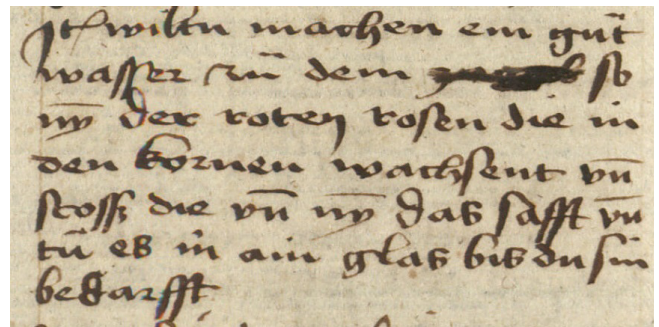 Jt wiltu machen ein guͦt
wasser zuͦ dem so
nȳ der roten rosen die in
den kornen wachsent vn̄
stoss die vn̄ nȳ das safft vn̄
tuͦ es in ain glas bis du sin
bedarfft